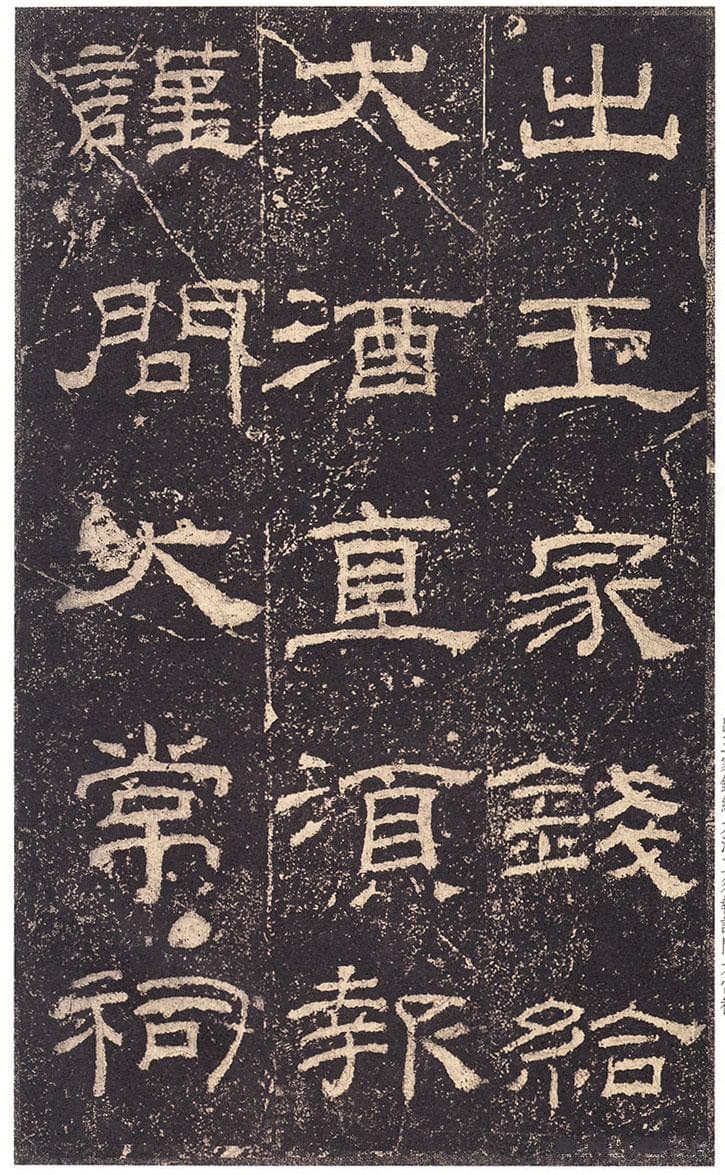 出王家錢給
犬酒直湏報
謹問大常祠